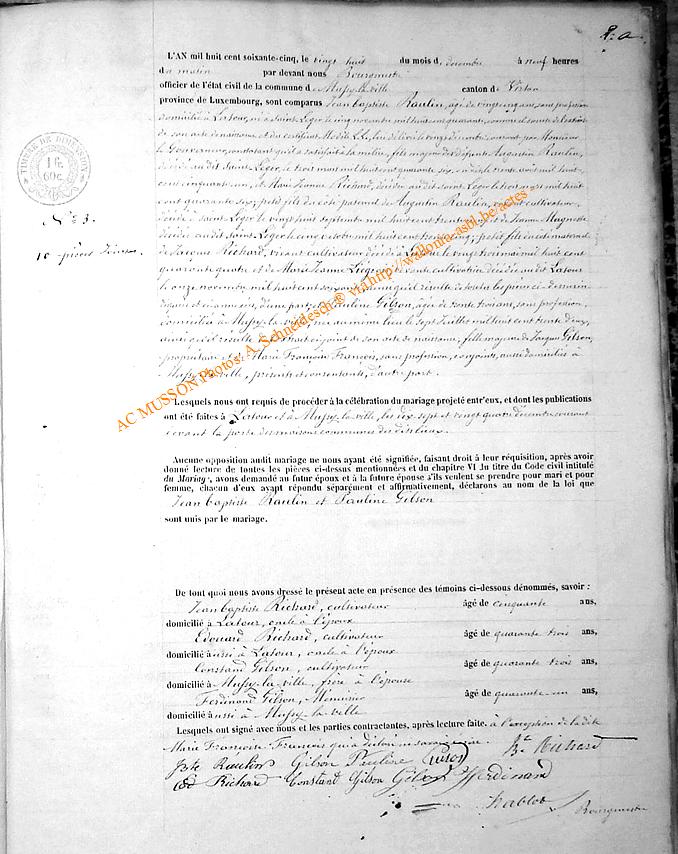 R. a.
L'AN mil huit cent soixante-cinq, le vingt huit du mois d e décembre à neuf heures
du matin par devant nous Bourgmestre
officier de l'état civil de la commune de Mussy-la-ville canton de Virton
province de Luxembourg, sont comparus Jean baptiste Raulin, âgé de vingt cinq ans, sans profession
domicilié à Latour, né à Saint Léger le cinq novembre mil huit cent quarante, comme il conste de l'extrait
de son acte de naissance et du certificat Modèle L.L. lui délivré le vingt décembre courant par Monsieur
le Gouverneur, constatant qu'il a satisfait à la milice, fils majeur des défunts Augustin Raulin,
décédé au dit Saint Léger, le trois mars mil huit cent quarante six, mil huit
cent cinquante un, et Marie Jeanne Richard, décédée au dit Saint Léger le trois mars mil huit
cent quarante six, petit fils du côté paternel de Augustin Raulin, cultivateur
décédé à Saint Léger le vingt huit septembre mil huit cent trente et de Jeanne Magnette
décédée au dit Saint Léger le cinq octobre mil huit cent trente cinq, petit fils du côté maternel
de Jacques Richard, vivant cultivateur décédé à Latour le vingt mai mil huit cent
quarante quatre et de Marie Jeanne vivante cultivatrice décédée au dit Latour
le onze novembre mil huit cent ainsi qu'il résulte de toutes les pièces ci-dessus
et ci annexées, d'une part, et Pauline Gilson, âgée de trente trois ans, sans profession,
domiciliée à Mussy-la-ville, née au même lieu le sept Juillet mil huit cent trente deux,
ainsi qu'il résulte de l'extrait ci joint de son acte de naissance, fille majeure de Jacques Gilson,
propriétaire et de Marie Françoise François, sans profession, conjoints, aussi domiciliés à
Mussy-la-ville, présents et consentants, d'autre part.
TIMBRE DE DIMENSION
1 fr.
60 c.
N° 23.
10 pièces
AC MUSSON Photos: A. Schneidesch ® via http://wallonia-asbl.be actes
Lesquels nous ont requis de procéder à la célébration du mariage projeté entr'eux, et dont les publications
ont été faites à Latour et à Mussy-la-ville, les dix sept et vingt quatre décembre courant
devant la porte des maisons communes des dits lieux.
Aucune opposition audit mariage ne nous ayant été signifiée, faisant droit à leur réquisition, après avoir
donné lecture de toutes les pièces ci-dessus mentionnées et du chapitre VI du titre du Code civil intitulé
du Mariage, avons demandé au futur époux et à la future épouse s'ils veulent se prendre pour mari et pour
femme, chacun d'eux ayant répondu séparément et affirmativement, déclarons au nom de la loi que
Jean baptiste Raulin et Pauline Gilson
sont unis par le mariage.
De tout quoi nous avons dressé le présent acte en présence des témoins ci-dessous dénommés, savoir :
Jean baptiste Richard, cultivateur âgé de cinquante ans,
domicilié à Latour, oncle à l'époux
Edouard Richard, cultivateur âgé de quarante trois ans,
domicilié aussi à Latour, oncle à l'époux
Constant Gilson, cultivateur âgé de quarante trois ans,
domicilié à Mussy-la-ville, frère à l'épouse
Ferdinand Gilson, Menuisier âgé de quarante un ans,
domicilié aussi à Mussy-la-ville
Lesquels ont signé avec nous et les parties contractantes, après lecture faite. à l'exception de la dite
Marie Françoise François qui a déclaré ne savoir
Jbte Raulin Gilson Pauline Gilson Bte Richard
Ed Richard Constant Gilson Gilson Ferdinand
Bourgmestre